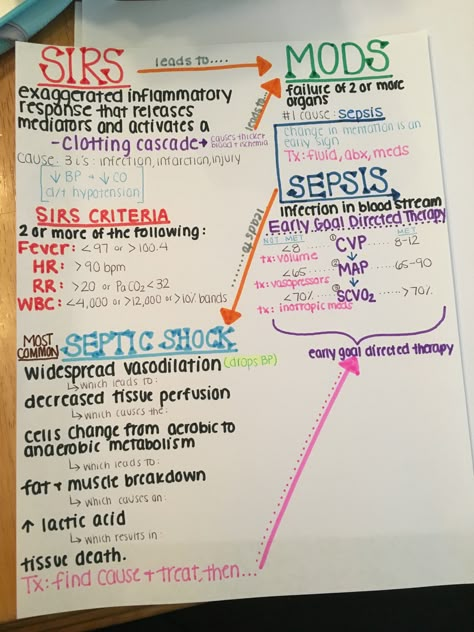 SIRS
leads to....
exaggerated inflammatory
response that releases
mediators and activates a
-Clotting cascade→ causes thicker
blood + ischemia
cause: 3 i's: infection, infarction, injury
↓ BP + ↓ CO
a/t hypotension
SIRS CRITERIA
2 or more of the following:
Fever: <97 or >100.4
HR: >90 bpm
RR: >20 or PaCO2<32
WBC: <4,000 or >12,000 or >10% bands
MODS
failure of 2 or more
organs
#1 cause: sepsis
change in mentation is an
early sign
Tx: fluid, abx, meds
leads to...
SEPSIS
infection in blood stream
Early Goal Directed Therapy
NOT MET
MET
<8 ① CVP ..... 8-12
tx: volume
<65 ② MAP ...... 65-90
tx: vasopressors
<70% ③ SCVO2 ...... >70%
tx: inotropic meds
early goal directed therapy
leads to
MOST
COMMON
SEPTIC SHOCK
widespread vasodilation (drops BP)
↳ which leads to:
decreased tissue perfusion
↳ which causes the:
cells change from aerobic to
anaerobic metabolism
↳ which leads to:
fat + muscle breakdown
↳ which causes an:
↑ lactic acid
↳ which results in:
tissue death.
Tx: find cause + treat, then...